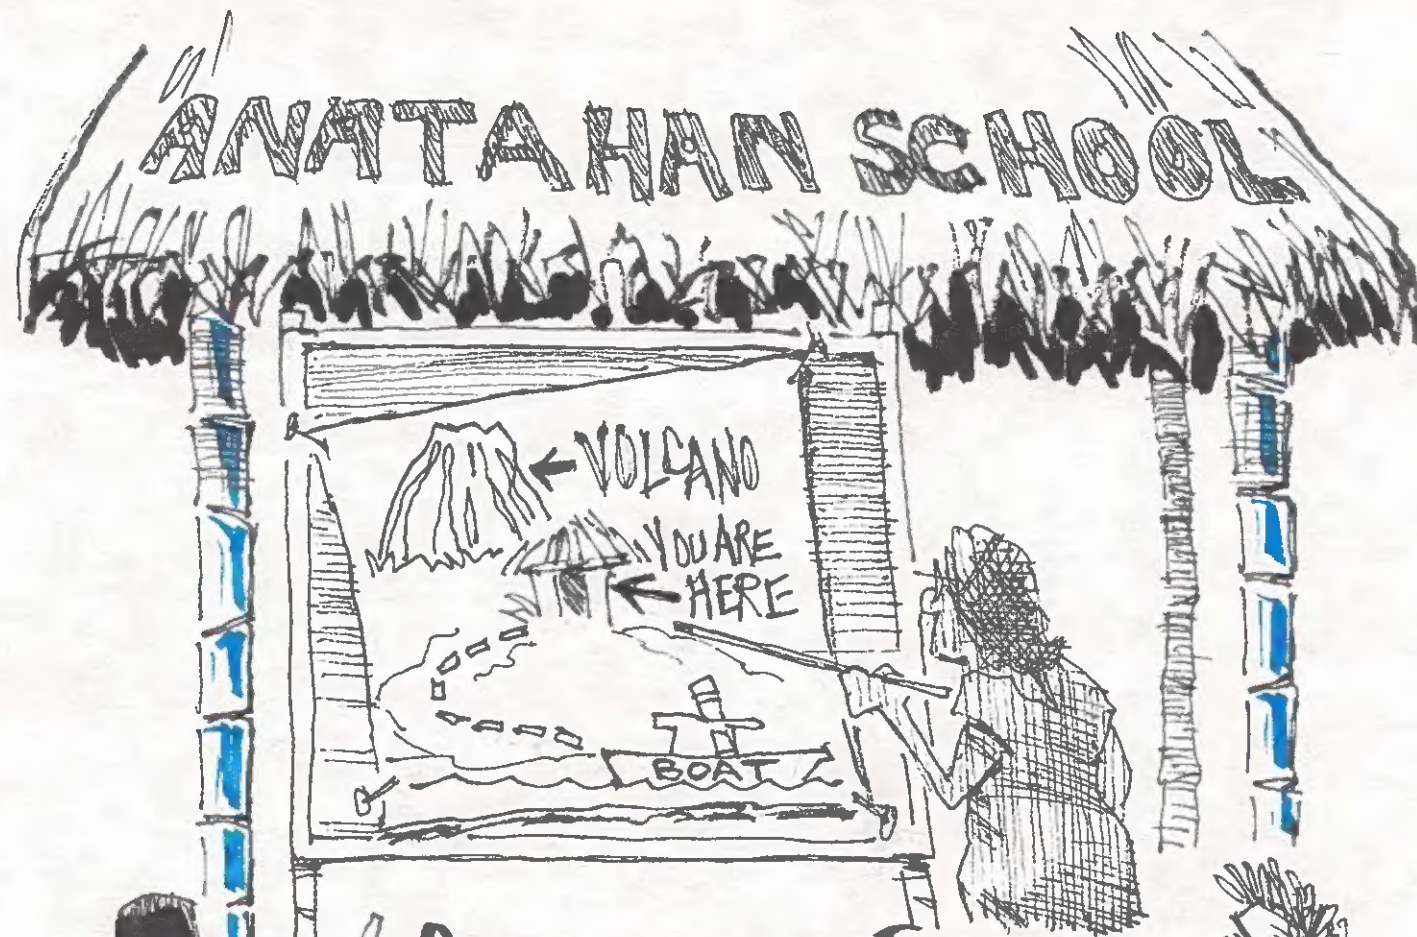 ANATAHAN SCHOOL
VOLCANO
YOU ARE
HERE
BOAT